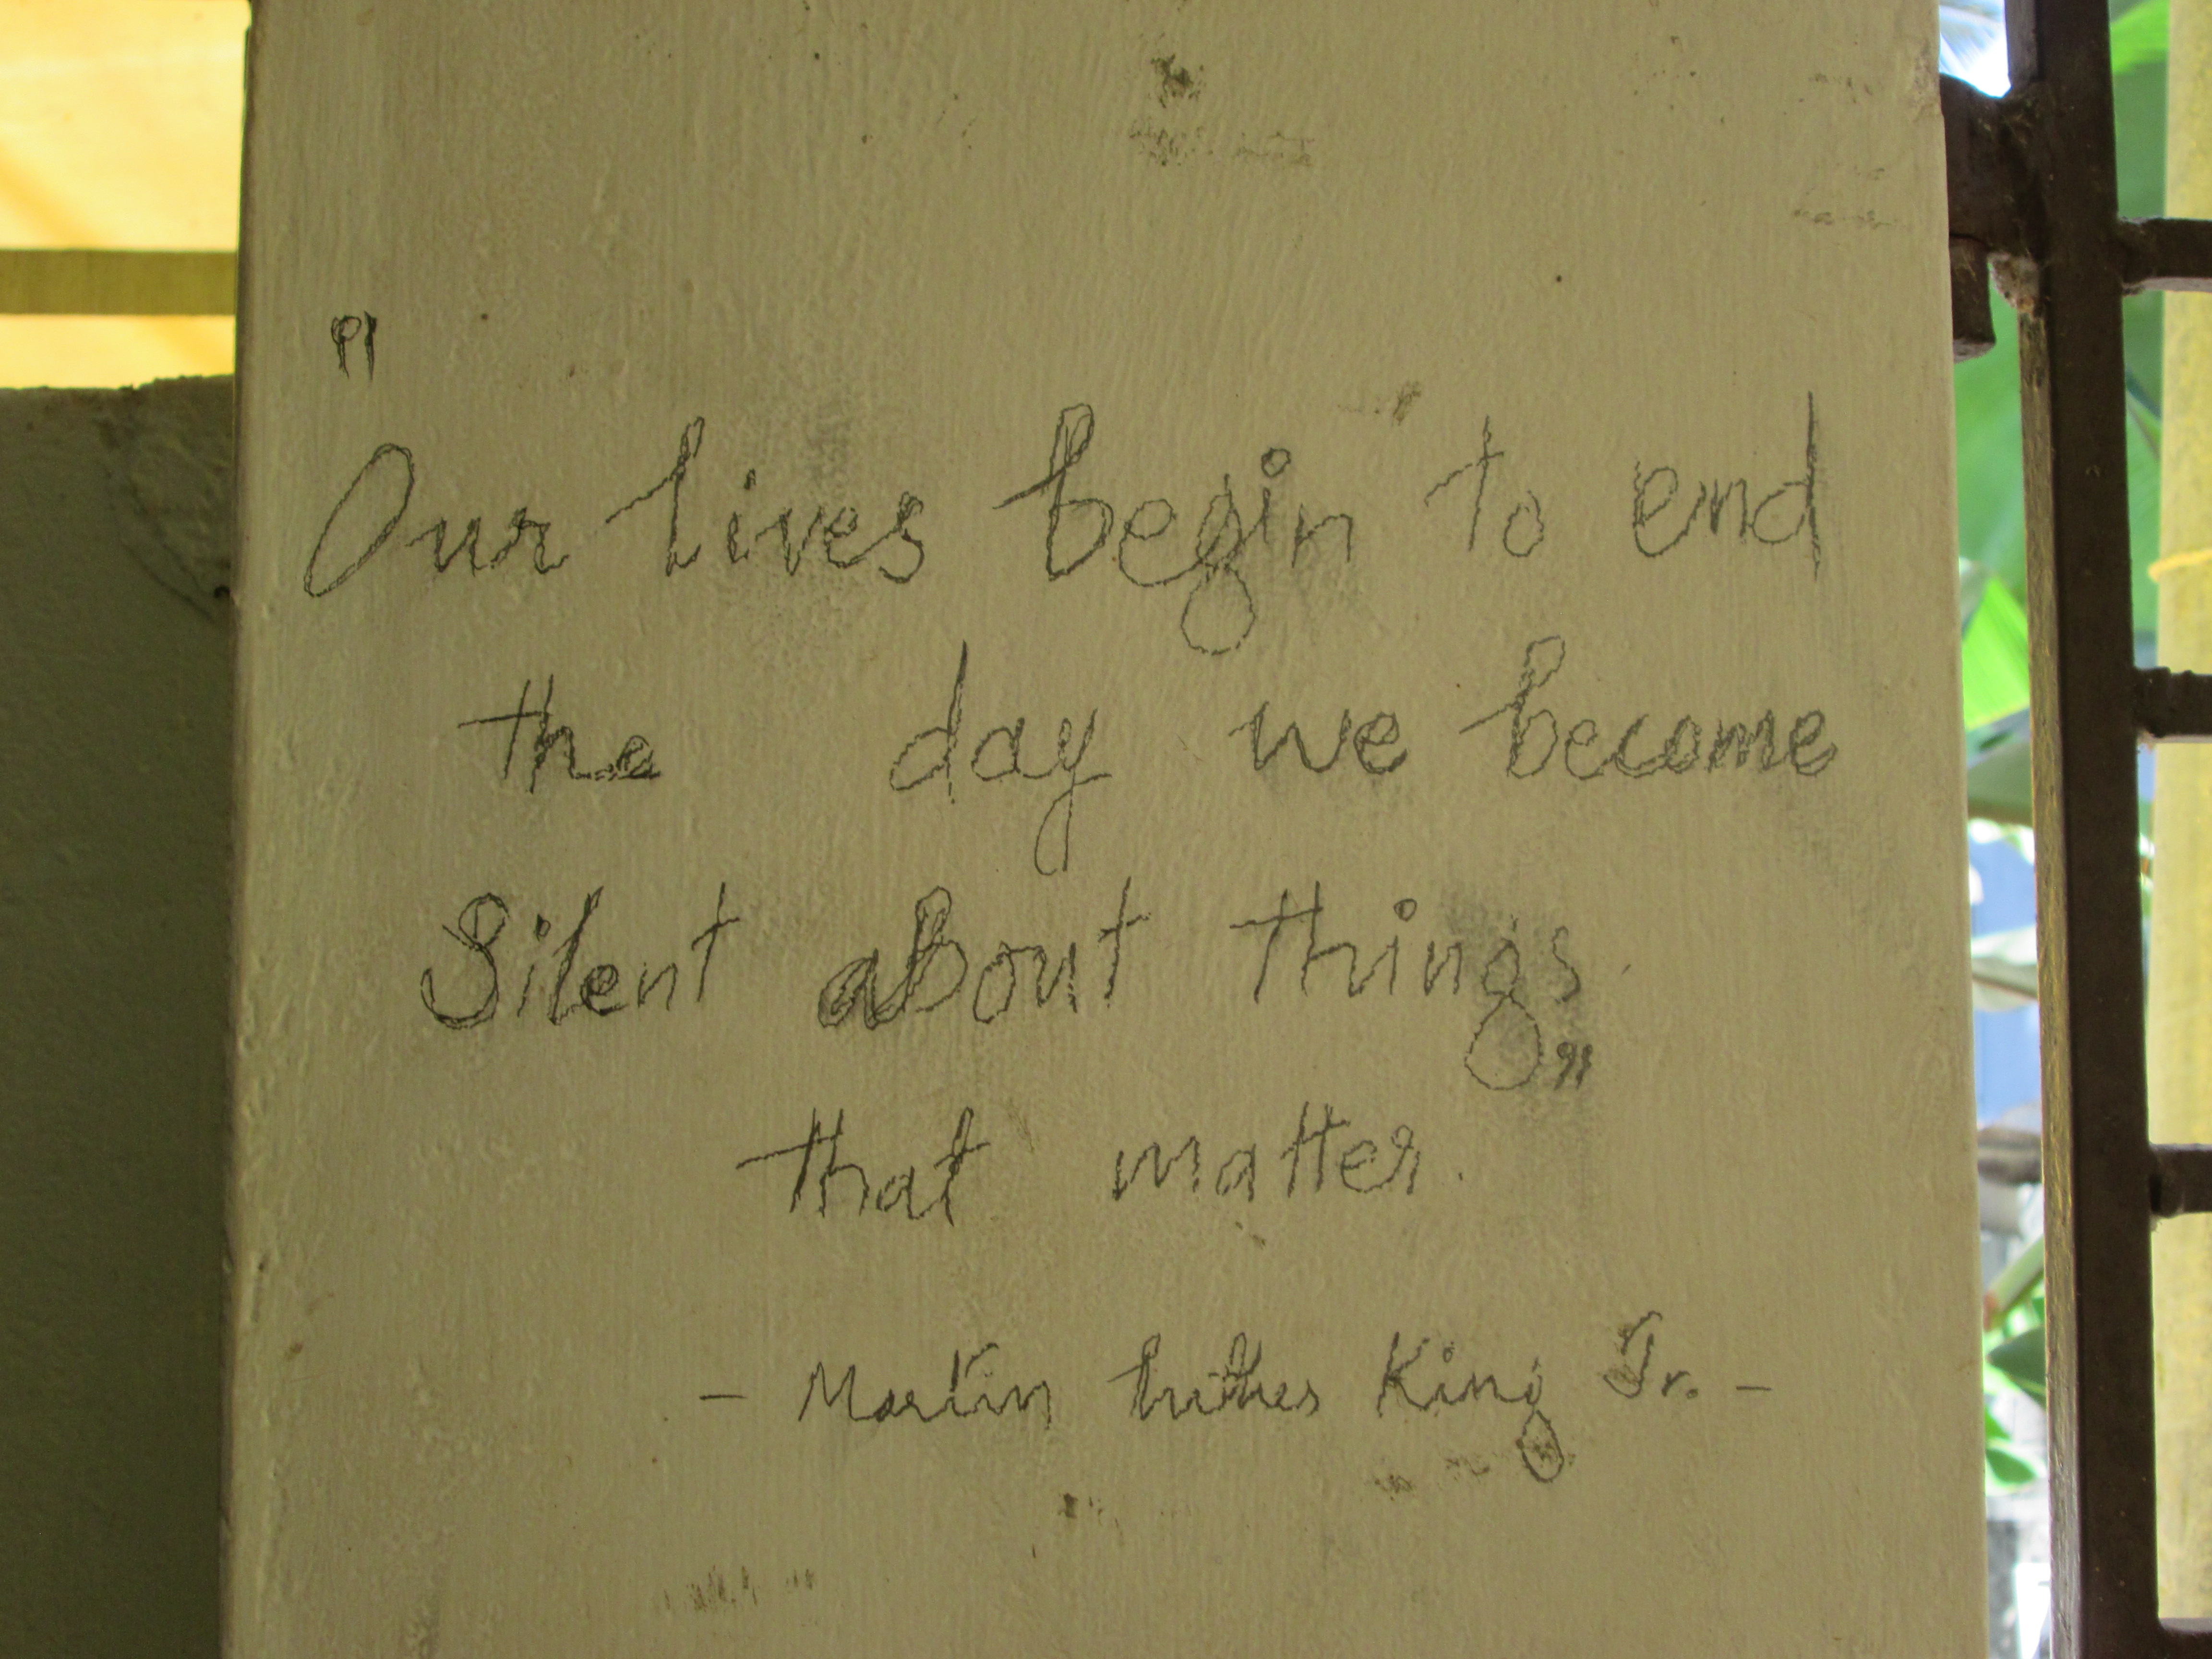 "
Our lives begin to end
the day we become
Silent about things
"
that matter.
- Martin Luther King Jr. -